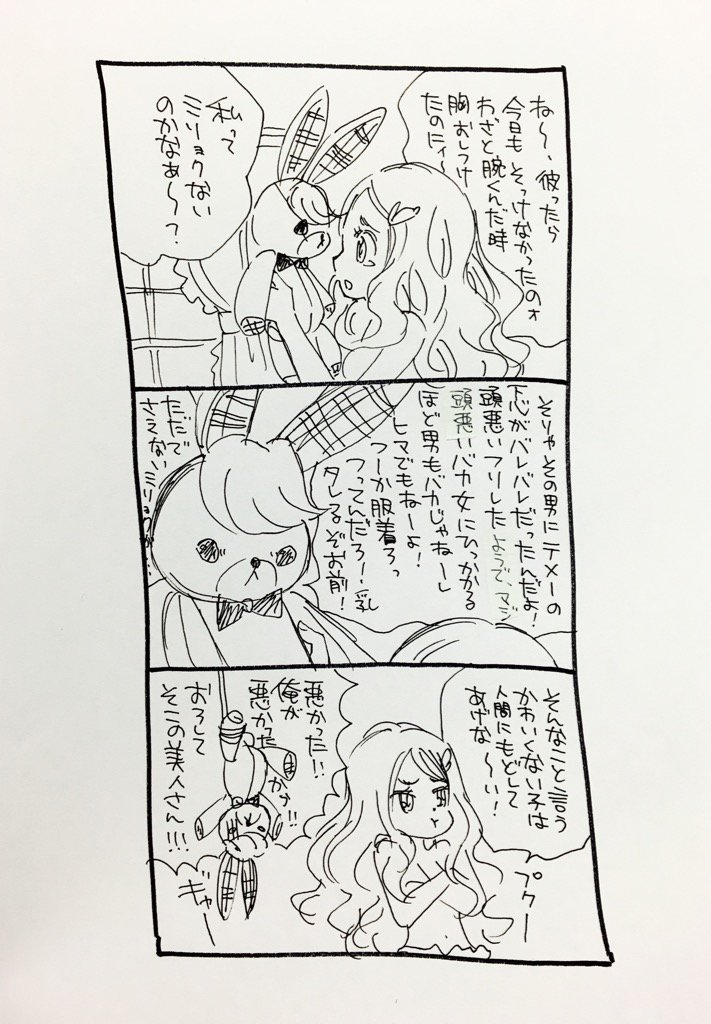 ね〜、彼ったら
今日もそっけなかったのォ
わざと腕くんだ時
胸おしつけ
たのにィー
私って
ミリョクない
のかなぁ〜？
そりゃその男にテメーの
下心がバレバレだったんだよ！
頭悪いフリしたようで、マジ
頭悪いバカ女にひっかかる
ほど男もバカじゃねーし
ヒマでもねーよ！
つーか服着ろっ
つってんだろー！乳
タレるぞお前！
ただで
さえない
そんなこと言う
かわいくない子は
人間にもどして
あげな〜い！
プクー
悪かった!!
俺が
悪かったかっ!!
おろして
そこの美人さん!!!
ギャー